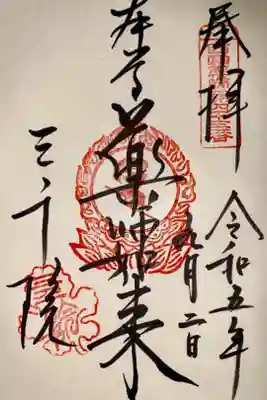 奉拝
令和五年
九月二日
本尊薬師如来
三千院